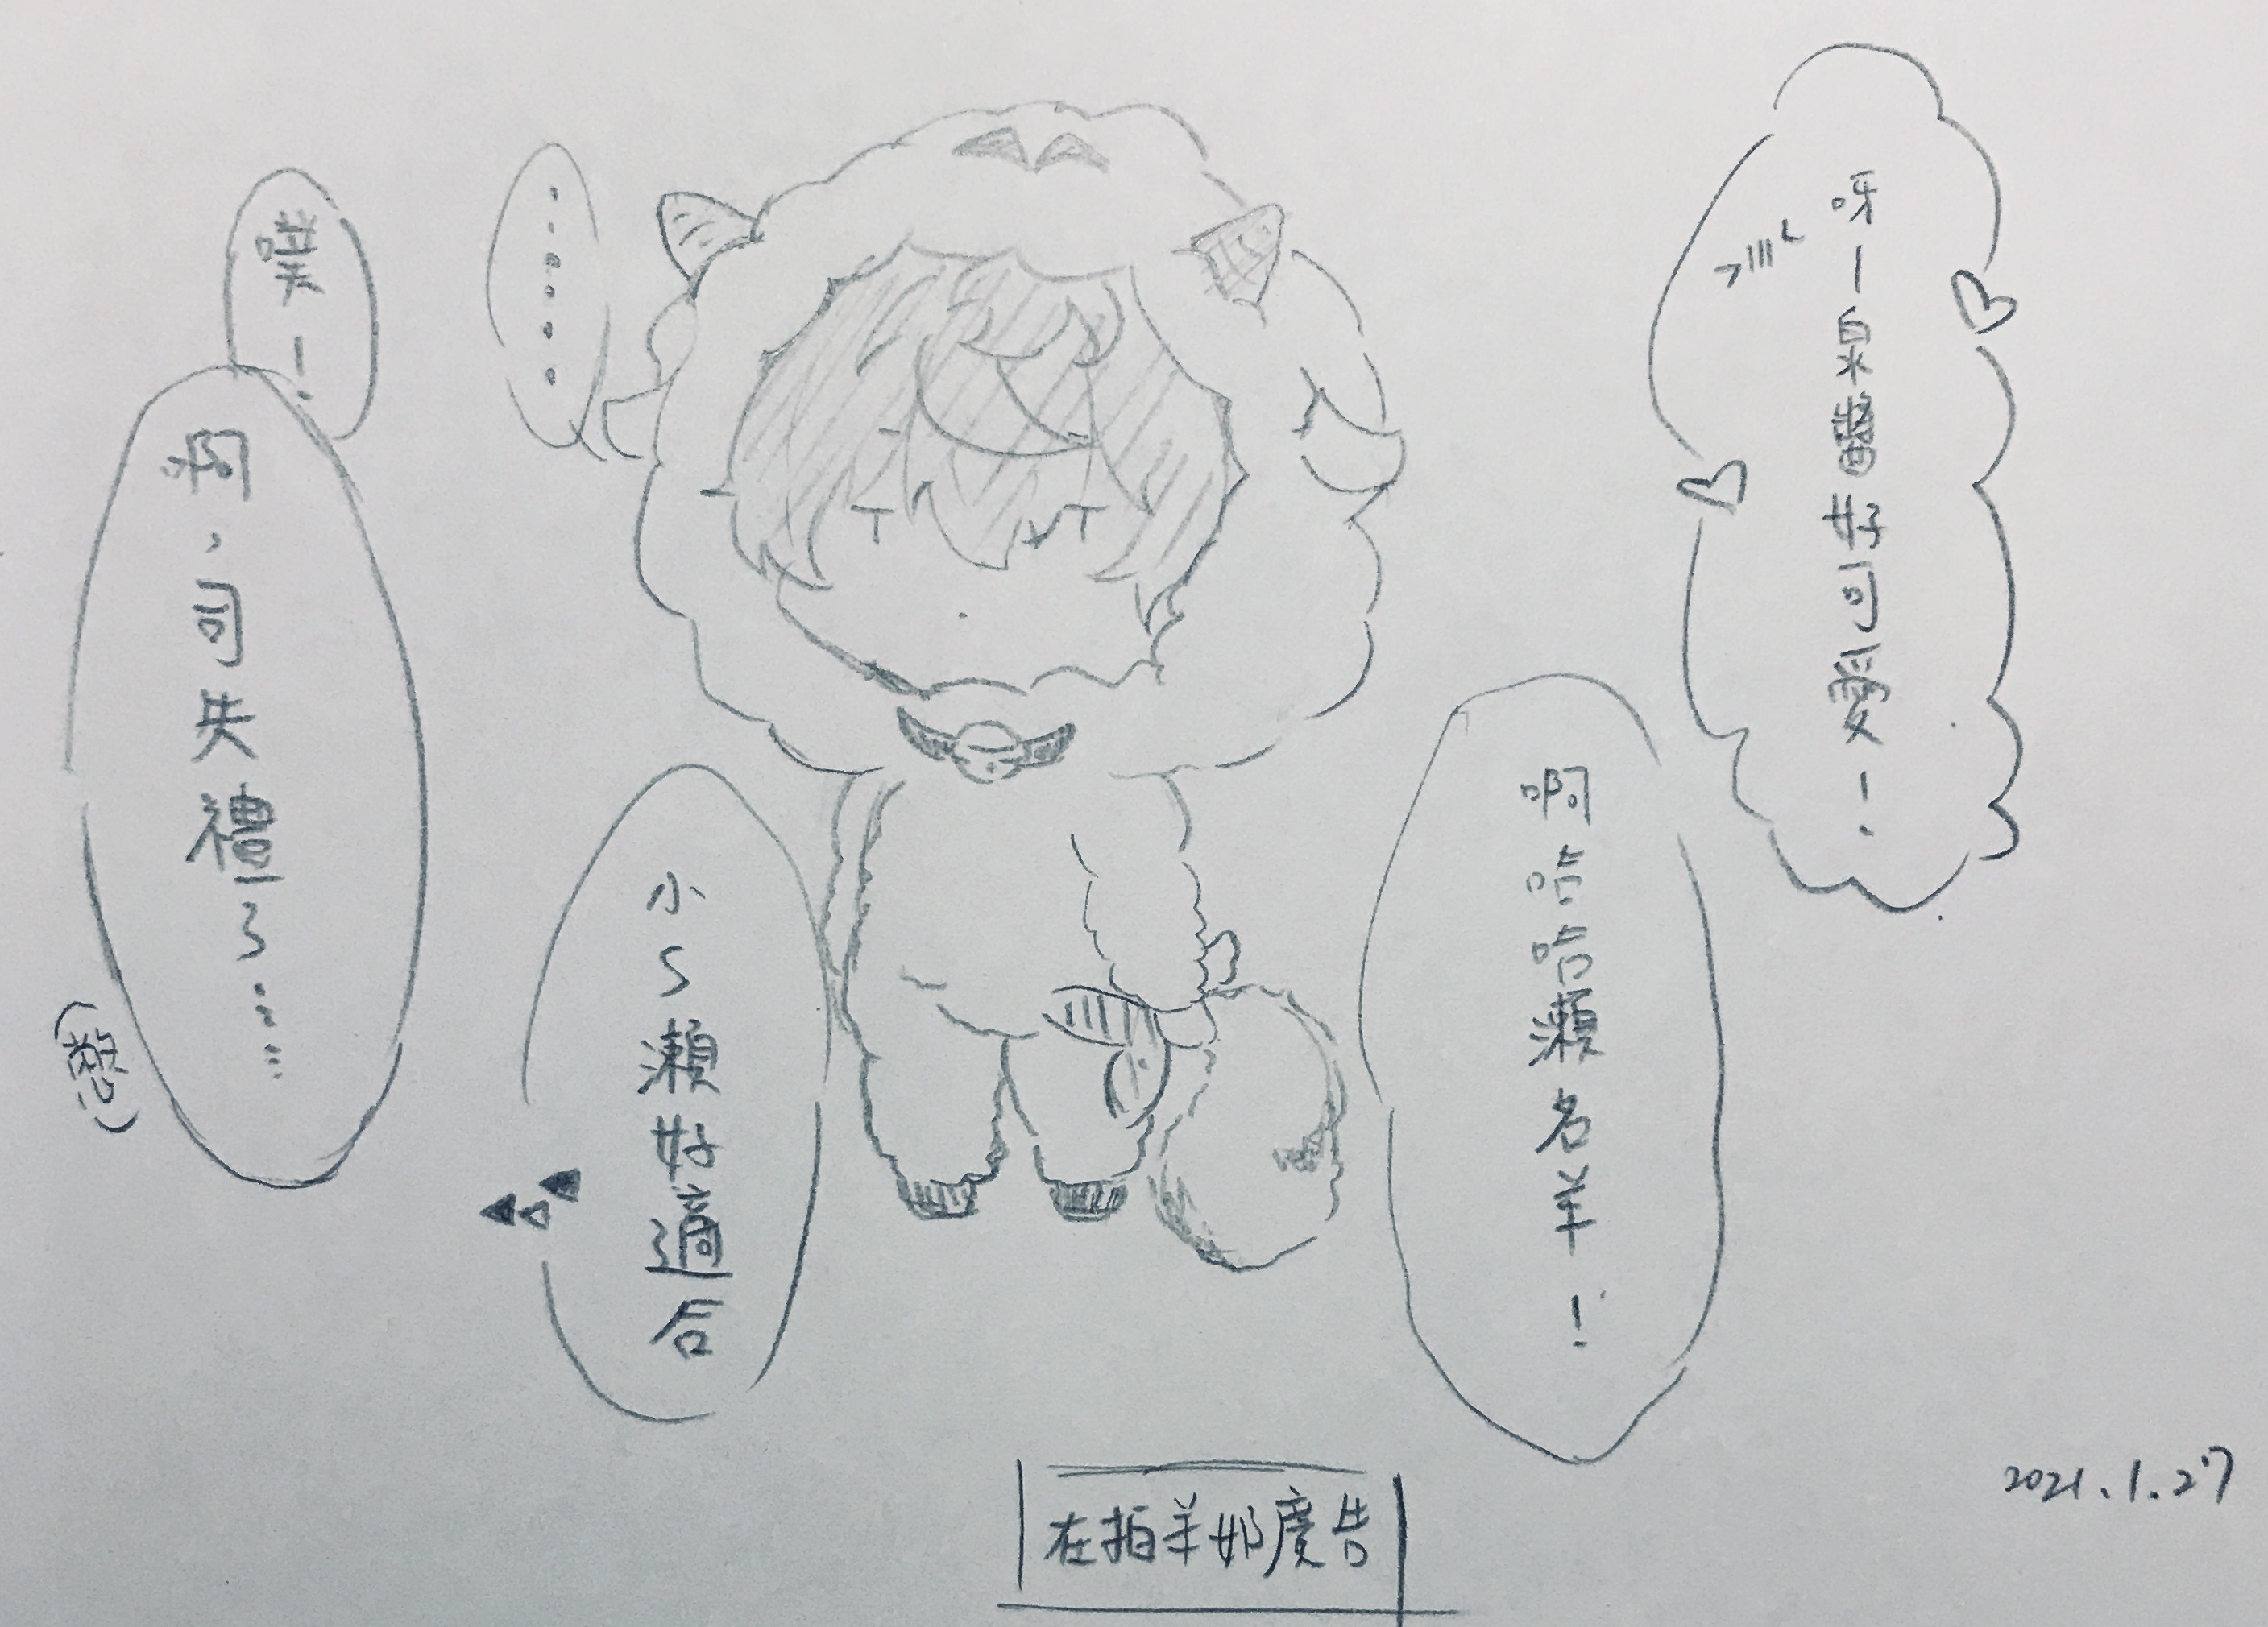 呀ー泉醬好可愛！
啊咗咗瀨名羊！
小ら瀨好適合
……
噗！
啊，司失禮了……
(憋)
在拍羊奶廣告
2021.1.27